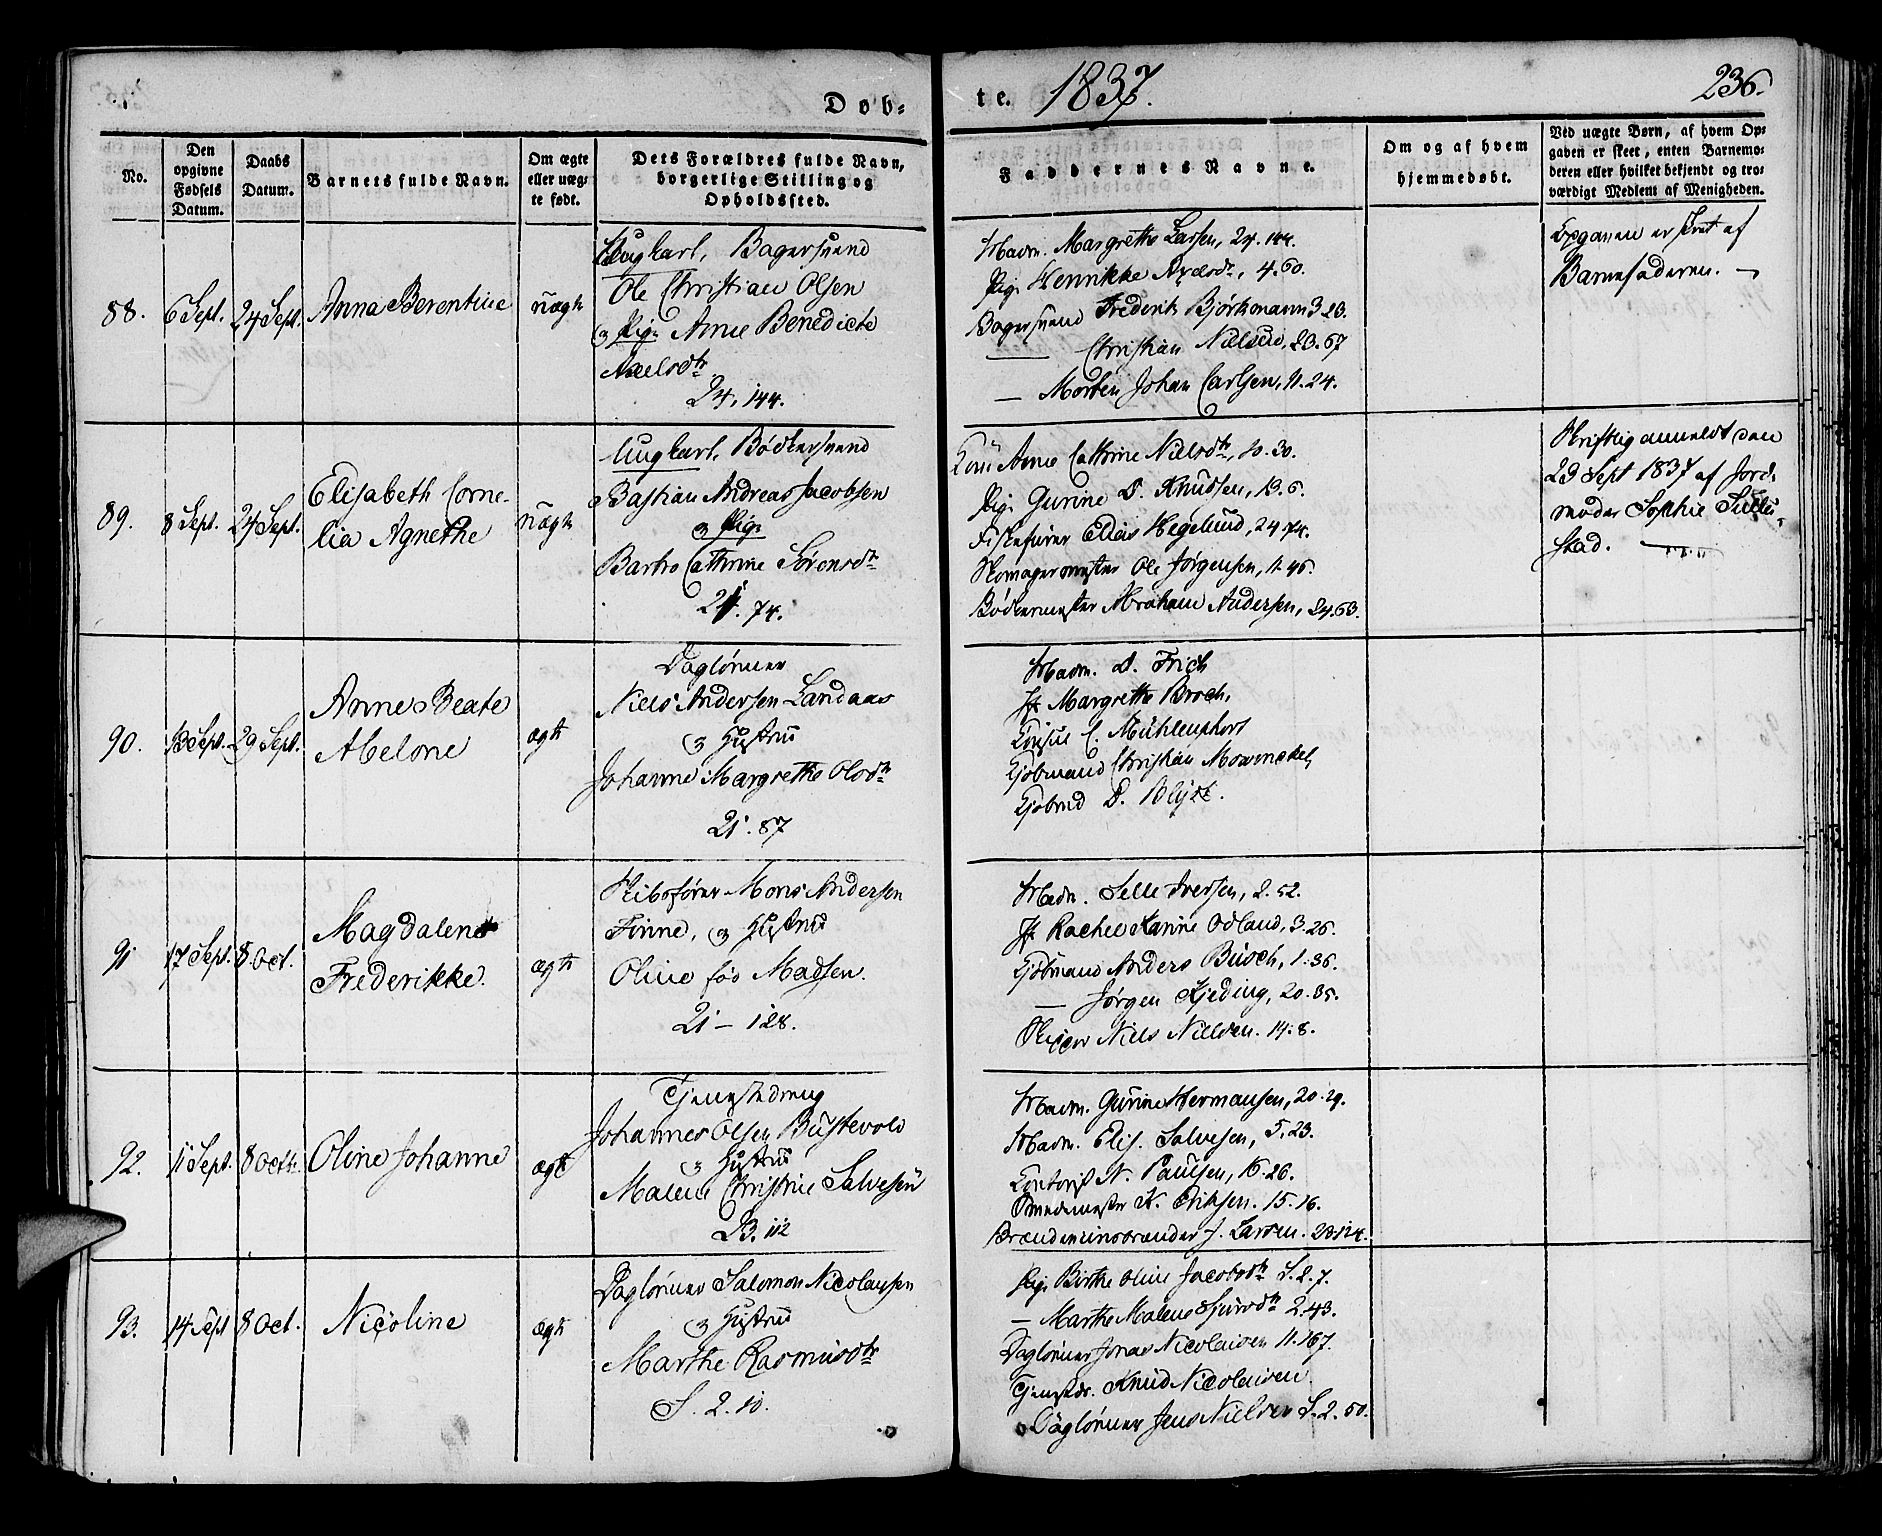 Døb-
te. 1837.
236.
No.
Den
opgivne
Fødsels
Datum.
Daabs
Datum.
Barnets fulde Navn.
Om ægte
eller uæg-
te født.
Dets Forældres fulde Navn,
borgerlige Stilling og
Opholdssted.
Faddernes Navne.
Om og af hvem
hjemmedøbt.
Ved uægte Børn, af hvem Op-
gaven er skeet, enten Barnemo-
deren eller hvilket bekjendt og tro-
værdigt Medlem af Menigheden.
88.
6 Sept.
24 Sept.
Anna Berentine
uægte
Ungkarl, Bagersvend
Ole Christian Olsen
og Pige Anne Benedicte
Axelsdtr
24, 144.
Madm. Margrethe Larsen, 24. 144.
Pige Hennikke Axelsdr, 4. 60.
Bagersvend Frederik Bjørkmann 3. 23.
— Christian Nielsen, 23. 67
— Morten Johan Carlsen, 11. 24.
Opgaven er skeet af
Barnefaderen. —
89.
8 Sept.
24 Sept.
Elisabeth Corne-
lia Agnethe
uægte
Ungkarl, Bødkersvend
Bastian Andreas Jacobsen
og Pige
Cathrine Sørensdtr
24. 74.
Kone Anne Cathrine Nielsdtr, 10. 30.
Pige Gurine D. Knudsen, 13. 6.
Elias Hegelund, 24. 74.
Skomagermester Ole Jørgensen, 11. 46.
Bødkermester Abraham Andersen, 24. 63.
Skriftlig anmeldt den
23 Sept 1837 af Jord-
moder Sophie
stad. —
90.
13 Sept.
29 Sept.
Anne Beate
Abelone
ægte
Daglønner
Niels Andersen Landaas
og Hustrue
Johanne Margrethe Olsdtr
21. 87
Madm. D. Frich
Jf Margrethe Broch,
Consul C. Mühlenphort
Kjøbmand Christian Mowinckel,
Kjøbmd D. Blytt.
91
17 Sept.
8 Oct.
Magdalene
Frederikke.
ægte
Skibsfører Mons Andersen
Finne, og Hustrue
Oline fød Madsen.
21 — 128.
Madm. Selle Iversen, 2. 52.
Jf Rachel Karine Odland, 3. 26.
Kjøbmand Anders Büsch, 1. 36.
— Jørgen Kjeding, 20. 35.
Skipper Niels Nielsen. 14. 8.
92.
11 Sept.
8 Octb.
Oline Johanne
ægte
Tjenestedreng
Johannes Olsen Bustevold
og Hustrue
Malene Christine Salvesen
23. 112
Madm. Gurine Hermansen, 20. 29.
Madm. Elis. Salvesen, 5. 23.
Contorist N. Paulsen, 16. 26.
Smedemester K. Eriksen. 15. 16.
J. Larsen. 23. 124.
93.
14 Sept
8 Oct.
Nicoline
ægte
Daglønner Salomon Nicolaysen
og Hustrue
Marthe Rasmusdtr
S. 2. 10.
Pige Birthe Oline Jacobsdtr S. 2. 7.
— Marthe Malene Sjursdtr 2. 43.
Daglønner Jonas Nicolaisen 11. 167.
Tjenestdr. Knud Nicolaisen
Daglønner Jens Nielsen S. 2. 50.